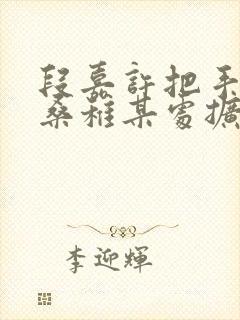 段嘉許把手
桑稚某處擴
李迎輝